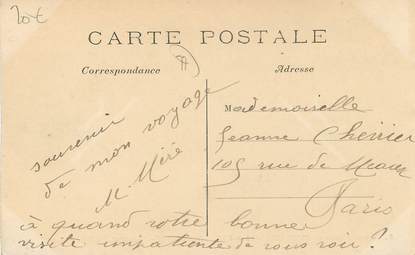 20€
CARTE POSTALE
Correspondance
Adresse
souvenir
de mon voyage
M Miré
à quand votre bonne
visite impatiente de vous voir ?
Mademoiselle
Jeanne Cherrier
105 rue de Meaux
Paris